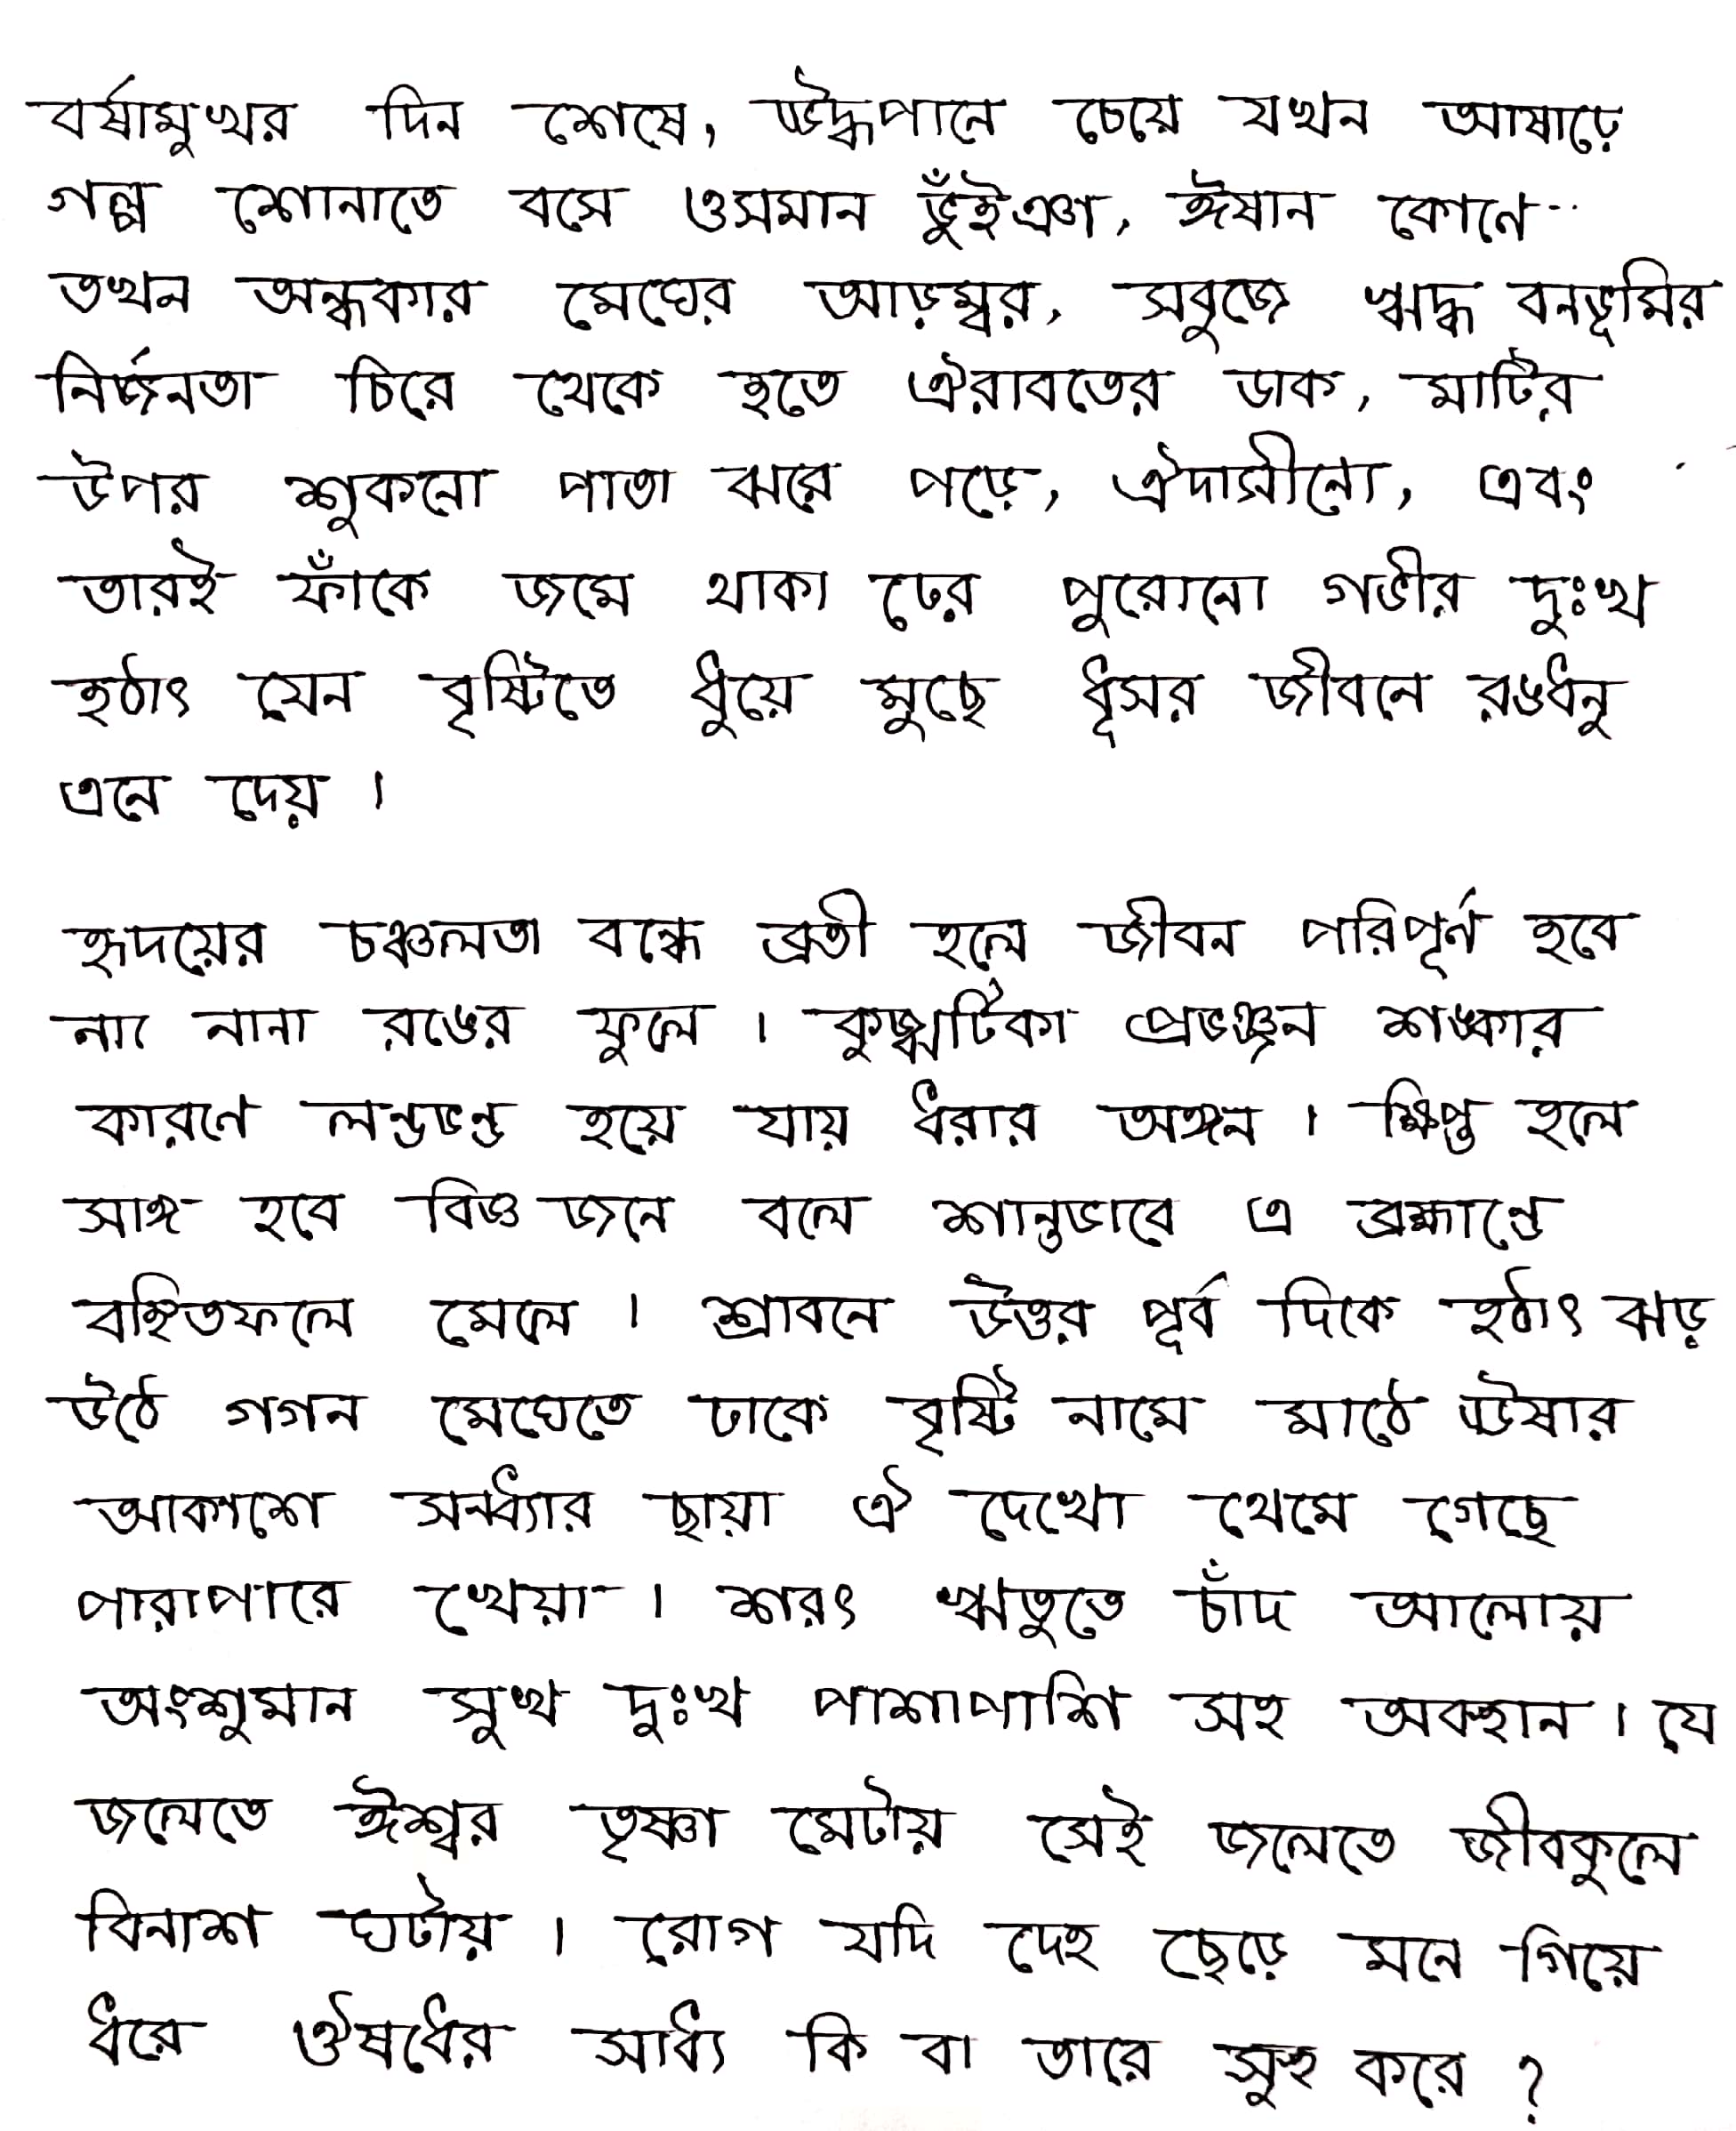 বর্ষামুখর দিন শেষে, ঊদ্ধপানে চেয়ে যখন আষাঢ়ে
গল্প শোনাতে বসে ওসমান ভুঁইঞা, ঈষান কোণে
তখন অন্ধকার মেঘের আড়ম্বর, সবুজে ঋদ্ধ বনভূমির
নির্জনতা চিরে থেকে হতে ঐরাবতের ডাক, মাটির
উপর শুকনো পাতা ঝরে পড়ে, ঐদাসীন্যে, এবং
তারই ফাঁকে জমে থাকা ঢের পুরোনো গভীর দুঃখ
হঠাৎ যেন বৃষ্টিতে ধুয়ে মুছে ধূসর জীবনে রঙধনু
এনে দেয়।
হৃদয়ের চঞ্চলতা বন্ধে ব্রতী হলে জীবন পরিপূর্ন হবে
না নানা রঙের ফুলে। কুজ্ঝটিকা প্রভঞ্জন শঙ্কার
কারণে লন্ডভন্ড হয়ে যায় ধরার অঙ্গন। ক্ষিপ্ত হলে
সাঙ্গ হবে বিজ্ঞ জনে বলে শান্তভাবে এ ব্রহ্মান্ডে
বহ্নিতফলে মেলে। শ্রাবনে উত্তর পূর্ব দিকে হঠাৎ ঝড়
উঠে গগন মেঘেতে ঢাকে বৃষ্টি নামে মাঠে ঊষার
আকাশে সন্ধ্যার ছায়া ঐ দেখো থেমে গেছে
পারাপারে খেয়া। শরৎ ঋতুতে চাঁদ আলোয়
অংশুমান সুখ দুঃখ পাশাপাশি সহ অবস্থান। যে
জলেতে ঈশ্বর তৃষ্ণা মেটায় সেই জলেতে জীবকুলে
বিনাশ ঘটায়। রোগ যদি দেহ ছেড়ে মনে গিয়ে
ধরে ঔষধের সাধ্য কি বা তারে সুস্থ করে?